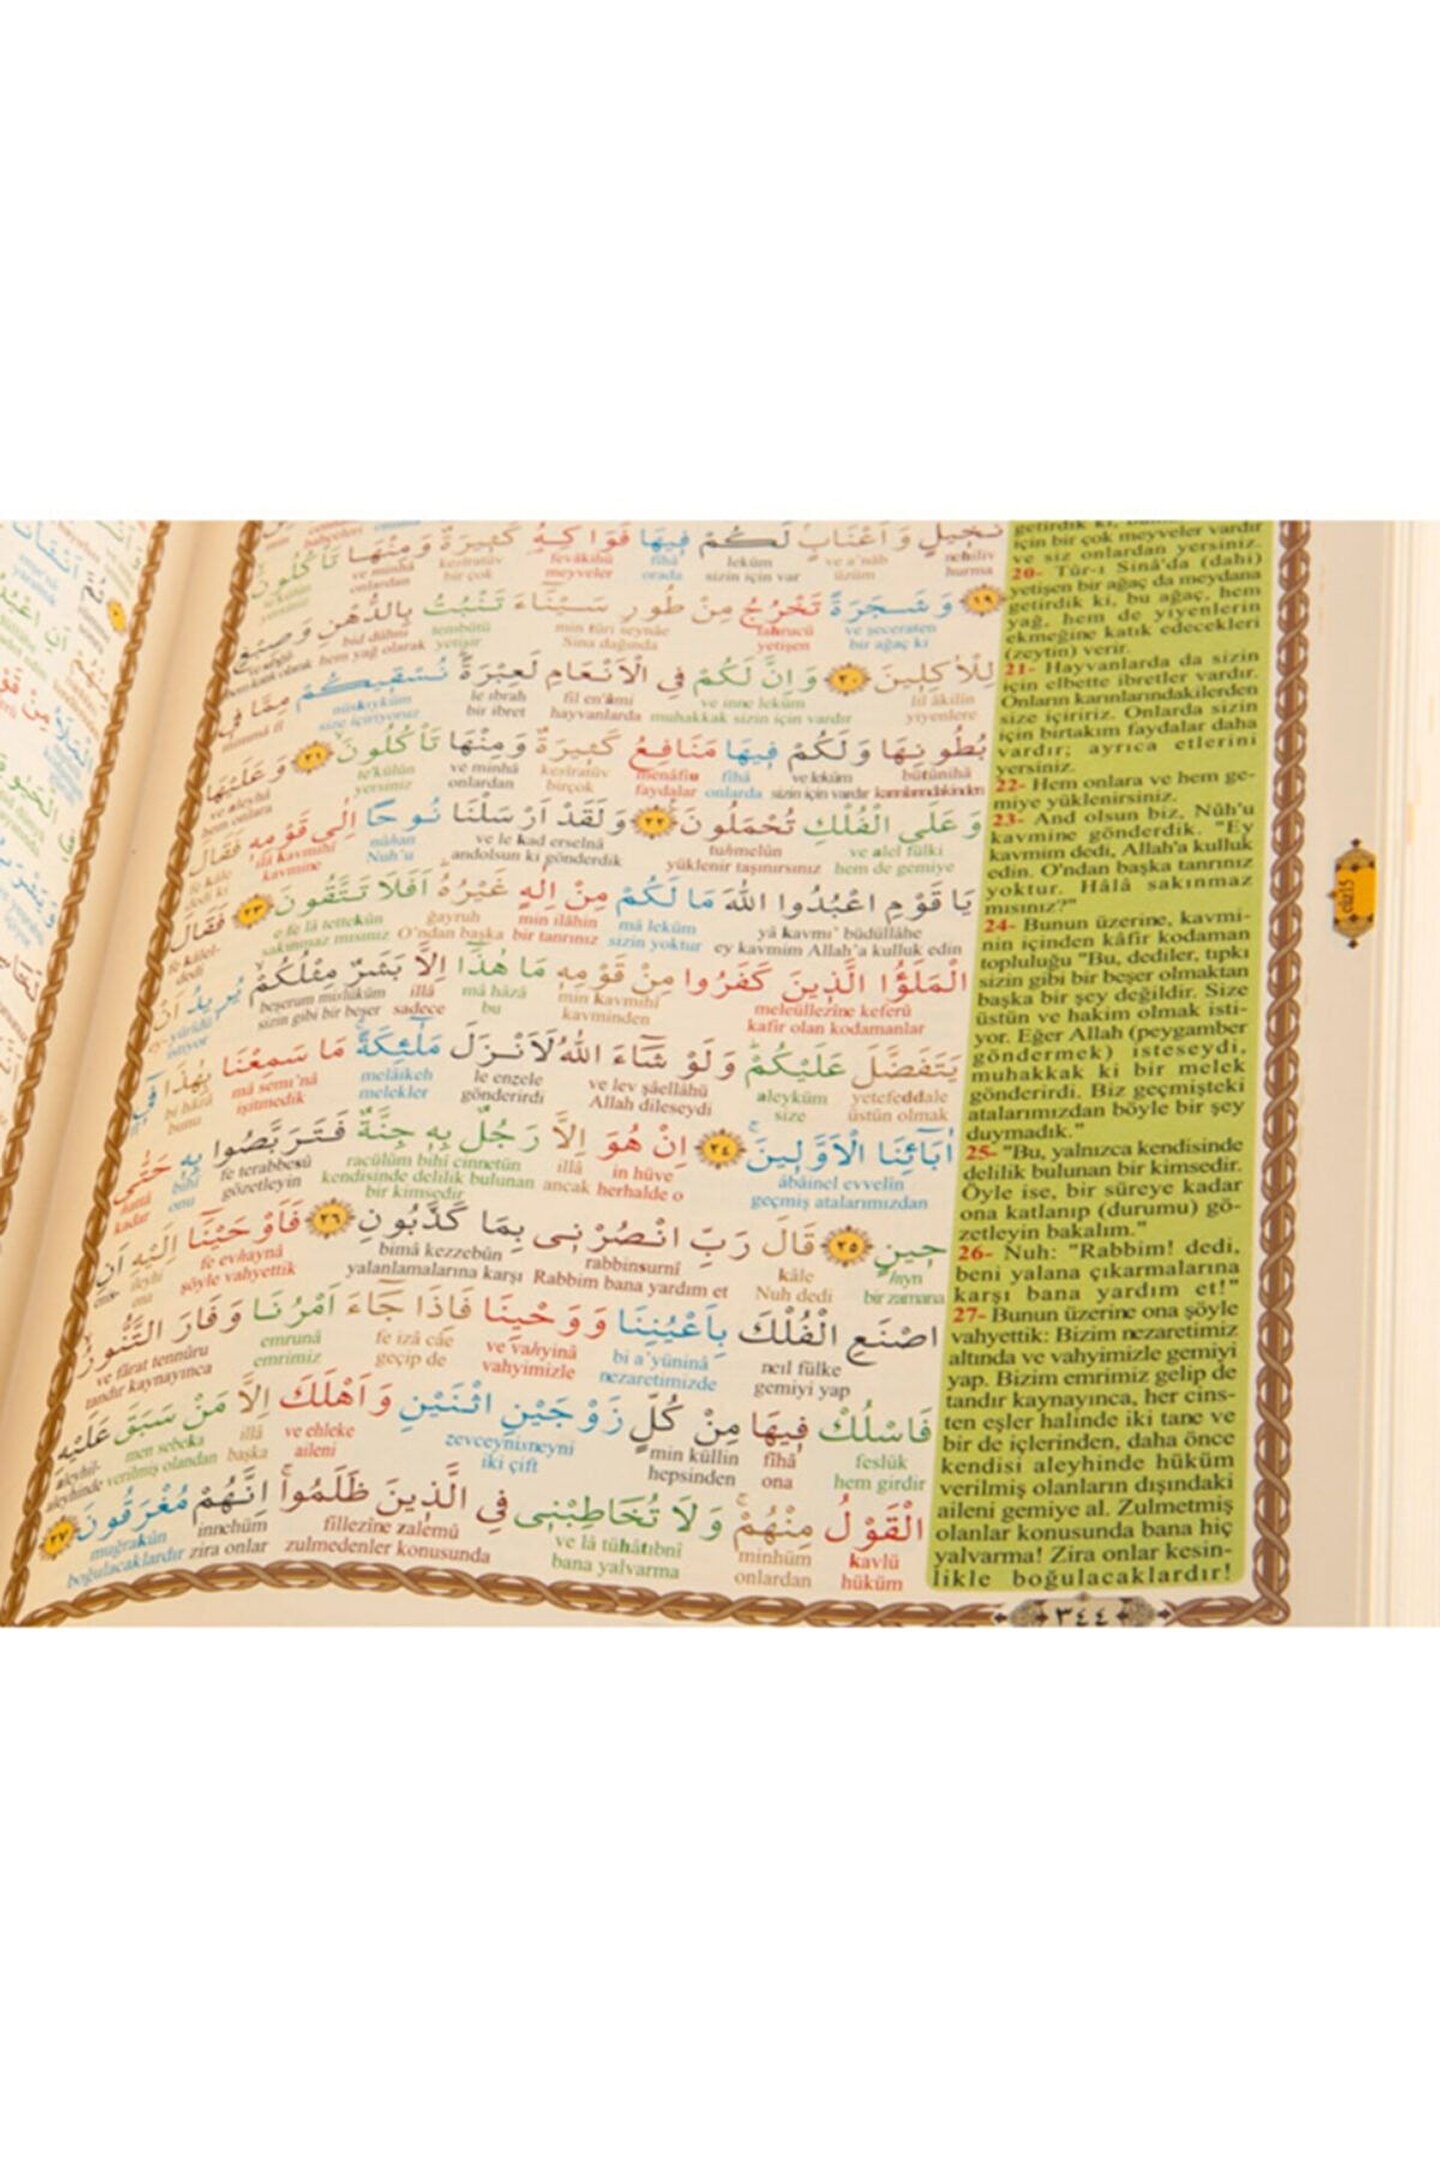 نَخِيلٍ وَاَعْنَابٍ لَكُمْ فِيهَا فَوَاكِهُ كَثِيرَةٌ وَمِنْهَا تَأْكُلُونَ
nehîliv ve a'nâb leküm fîhâ fevâkihü kesîratüv ve minhâ
hurma üzüm sizin için var orada meyveler bir çok onlardan
﴿١٩﴾ وَشَجَرَةً تَخْرُجُ مِنْ طُورِ سَيْنَٓاءَ تَنْبُتُ بِالدُّهْنِ وَصِبْغٍ
ve şeceraten tahrucü min tûri seynâe tembütü bid dühni
bir ağaç ki yetişen Sina dağında yetişir hem yağ olarak hem katık olarak
لِلْاٰكِلِينَ ﴿٢٠﴾ وَاِنَّ لَكُمْ فِي الْاَنْعَامِ لَعِبْرَةً نُسْقِيكُمْ مِمَّا فِي
lil âkilîn ve inne leküm fil en'âmi le ıbrah nüskıyküm mimmâ fî
yiyenlere muhakkak sizin için vardır hayvanlarda bir ibret size içiriyoruz
بُطُونِهَا وَلَكُمْ فِيهَا مَنَافِعُ كَثِيرَةٌ وَمِنْهَا تَأْكُلُونَ ﴿٢١﴾ وَعَلَيْهَا
bütûnihâ ve leküm fîhâ menâfiu kesîratüv ve minhâ te'külûn ve aleyhâ
karınlarındakinden sizin için vardır onlarda faydalar birçok onlardan yersiniz hem onlara
وَعَلَى الْفُلْكِ تُحْمَلُونَ ﴿٢٢﴾ وَلَقَدْ اَرْسَلْنَا نُوحًا اِلٰى قَوْمِهِ فَقَالَ
ve alel fülki tuhmelûn ve le kad erselnâ nûhan ilâ kavmihî fe kâle
hem de gemiye yüklenir taşınırsınız andolsun ki gönderdik Nuh'u kavmine dedi ki
يَا قَوْمِ اعْبُدُوا اللّٰهَ مَا لَكُمْ مِنْ اِلٰهٍ غَيْرُهُ اَفَلَا تَتَّقُونَ ﴿٢٣﴾ فَقَالَ
yâ kavmı' büdüllâhe mâ leküm min ilâhin ğayruh e fe lâ tettekûn fe kâlel-
ey kavmim Allah'a kulluk edin sizin yoktur bir tanrınız O'ndan başka sakınmaz mısınız dedi
الْمَلَؤُا الَّذِينَ كَفَرُوا مِنْ قَوْمِهِ مَا هٰذَٓا اِلَّا بَشَرٌ مِثْلُكُمْ يُرِيدُ اَنْ
meleüllezîne keferû min kavmihî mâ hâzâ illâ beşerum mislüküm ey-yürîdü
kafir olan kodamanlar kavminden bu sadece sizin gibi bir beşer istiyor
يَتَفَضَّلَ عَلَيْكُمْ وَلَوْ شَٓاءَ اللّٰهُ لَاَنْزَلَ مَلٰٓئِكَةً مَا سَمِعْنَا بِهٰذَا فِٓي
yetefeddale aleyküm ve lev şâellâhü le enzele melâikeh mâ semı'nâ bi hâzâ fî
üstün olmak size Allah dileseydi gönderirdi melekler işitmedik bunu
اٰبَٓائِنَا الْاَوَّلِينَ ﴿٢٤﴾ اِنْ هُوَ اِلَّا رَجُلٌ بِهِ جِنَّةٌ فَتَرَبَّصُوا بِهِ حَتّٰى
âbâinel evvelîn in hüve illâ racülüm bihî cinnetün fe terabbesû bihî hattâ
geçmiş atalarımızdan herhalde o ancak kendisinde delilik bulunan gözetleyin onu kadar
bir kimsedir
حِينٍ ﴿٢٥﴾ قَالَ رَبِّ انْصُرْنِي بِمَا كَذَّبُونِ ﴿٢٦﴾ فَاَوْحَيْنَٓا اِلَيْهِ اَنِ
hîyn kâle rabbinsurnî bimâ kezzebûn fe evhaynâ ileyhi enis-
bir zamana Nuh dedi Rabbim bana yardım et yalanlamalarına karşı şöyle vahyettik ona
اصْنَعِ الْفُلْكَ بِاَعْيُنِنَا وَوَحْيِنَا فَاِذَا جَٓاءَ اَمْرُنَا وَفَارَ التَّنُّورُ
neıl fülke bi a'yüninâ ve vahyinâ fe izâ câe emrunâ ve fârat tennûru
gemiyi yap nezaretimizde vahyimizle geçip de emrimiz tandır kaynayınca
فَاسْلُكْ فِيهَا مِنْ كُلٍّ زَوْجَيْنِ اثْنَيْنِ وَاَهْلَكَ اِلَّا مَنْ سَبَقَ عَلَيْهِ
feslük fîhâ min küllin zevceynisneyni ve ehleke illâ men sebeka aleyhil-
hem girdir ona hepsinden iki çift aileni başka verilmiş olandan aleyhinde
الْقَوْلُ مِنْهُمْ وَلَا تُخَاطِبْنِي فِي الَّذِينَ ظَلَمُوا اِنَّهُمْ مُغْرَقُونَ ﴿٢٧﴾
kavlü minhüm ve lâ tühâtıbnî fillezîne zalemû innehüm muğrakûn
hüküm onlardan bana yalvarma zulmedenler konusunda zira onlar boğulacaklardır
için bir çok meyveler vardır
ve siz onlardan yersiniz.
20- Tûr-i Sinâ'da (dahi)
yetişen bir ağaç da meydana
getirdik ki, bu ağaç, hem
yağ, hem de yiyenlerin
ekmeğine katık edecekleri
(zeytin) verir.
21- Hayvanlarda da sizin
için elbette ibretler vardır.
Onların karınlarındakilerden
size içiririz. Onlarda sizin
için birtakım faydalar daha
vardır; ayrıca etlerini
yersiniz.
22- Hem onlara ve hem ge-
miye yüklenirsiniz.
23- And olsun biz, Nûh'u
kavmine gönderdik. "Ey
kavmim dedi, Allah'a kulluk
edin. O'ndan başka tanrınız
yoktur. Hâlâ sakınmaz
mısınız?"
24- Bunun üzerine, kavmi-
nin içinden kâfir kodaman
topluluğu "Bu, dediler, tıpkı
sizin gibi bir beşer olmaktan
başka bir şey değildir. Size
üstün ve hakim olmak isti-
yor. Eğer Allah (peygamber
göndermek) isteseydi,
muhakkak ki bir melek
gönderirdi. Biz geçmişteki
atalarımızdan böyle bir şey
duymadık."
25- "Bu, yalnızca kendisinde
delilik bulunan bir kimsedir.
Öyle ise, bir süreye kadar
ona katlanıp (durumu) gö-
zetleyin bakalım."
26- Nuh: "Rabbim! dedi,
beni yalana çıkarmalarına
karşı bana yardım et!"
27- Bunun üzerine ona şöyle
vahyettik: Bizim nezaretimiz
altında ve vahyimizle gemiyi
yap. Bizim emrimiz gelip de
tandır kaynayınca, her cins-
ten eşler halinde iki tane ve
bir de içlerinden, daha önce
kendisi aleyhinde hüküm
verilmiş olanların dışındaki
aileni gemiye al. Zulmetmiş
olanlar konusunda bana hiç
yalvarma! Zira onlar kesin-
likle boğulacaklardır!
٣٤٤